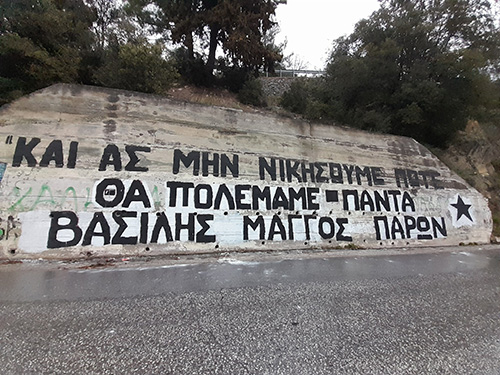 "ΚΑΙ ΑΣ ΜΗΝ ΝΙΚΗΣΟΥΜΕ ΠΟΤΕ
ΘΑ ΠΟΛΕΜΑΜΕ ΠΑΝΤΑ
ΒΑΣΙΛΗΣ ΜΑΓΓΟΣ ΠΑΡΩΝ